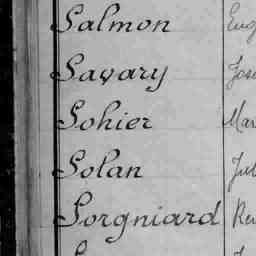 Salmon Eug
Savary Jose
Sohier Mar
Solan Jul
Sorgniard Ren